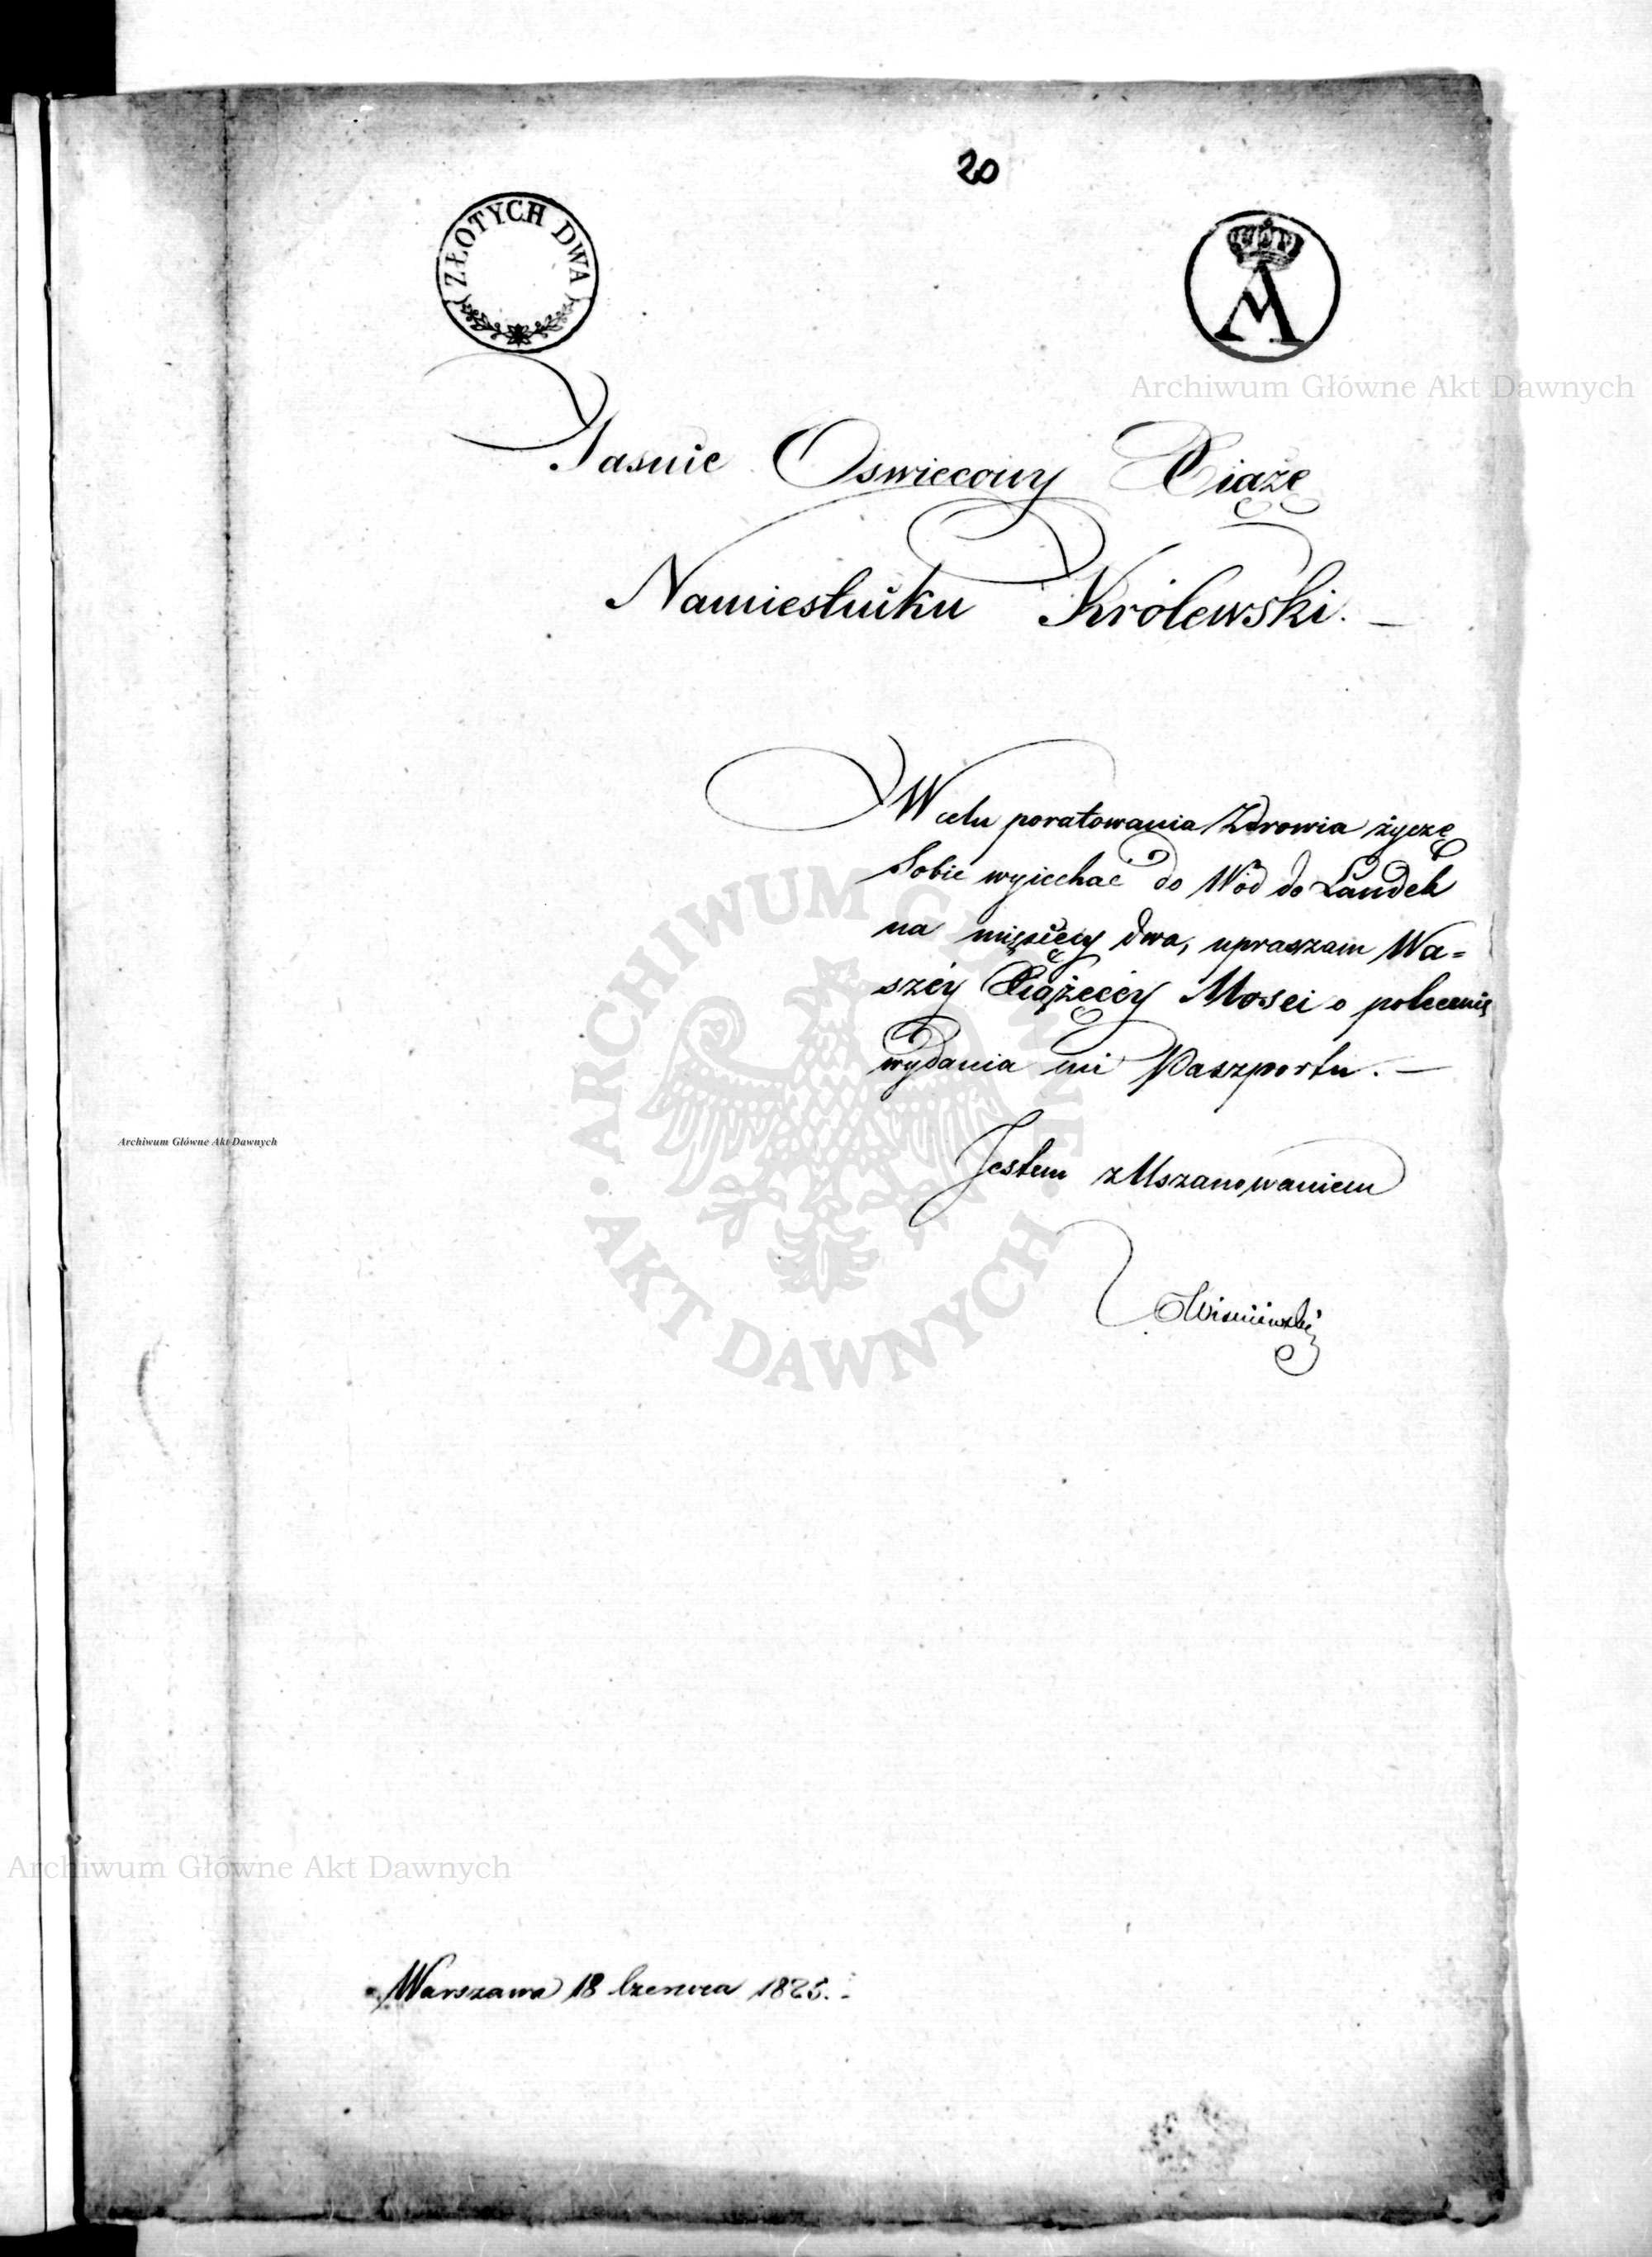 20
ZŁOTYCH DWA
A
Archiwum Główne Akt Dawnych
Jasnie Oswiecony Xiąże
Namiestniku Królewski. —
W celu poratowania Zdrowia życzę
Sobie wyiechać do Wód do Landek
na miesięcy dwa, upraszam Wa=
széy Xiążęcéy Mosci o polecenie
wydania mi Paszportu. —
Jestem z Uszanowaniem
Wisniewski
ARCHIWUM GŁÓWNE
AKT DAWNYCH
Archiwum Główne Akt Dawnych
Archiwum Główne Akt Dawnych
Warszawa 18 Czerwca 1825.